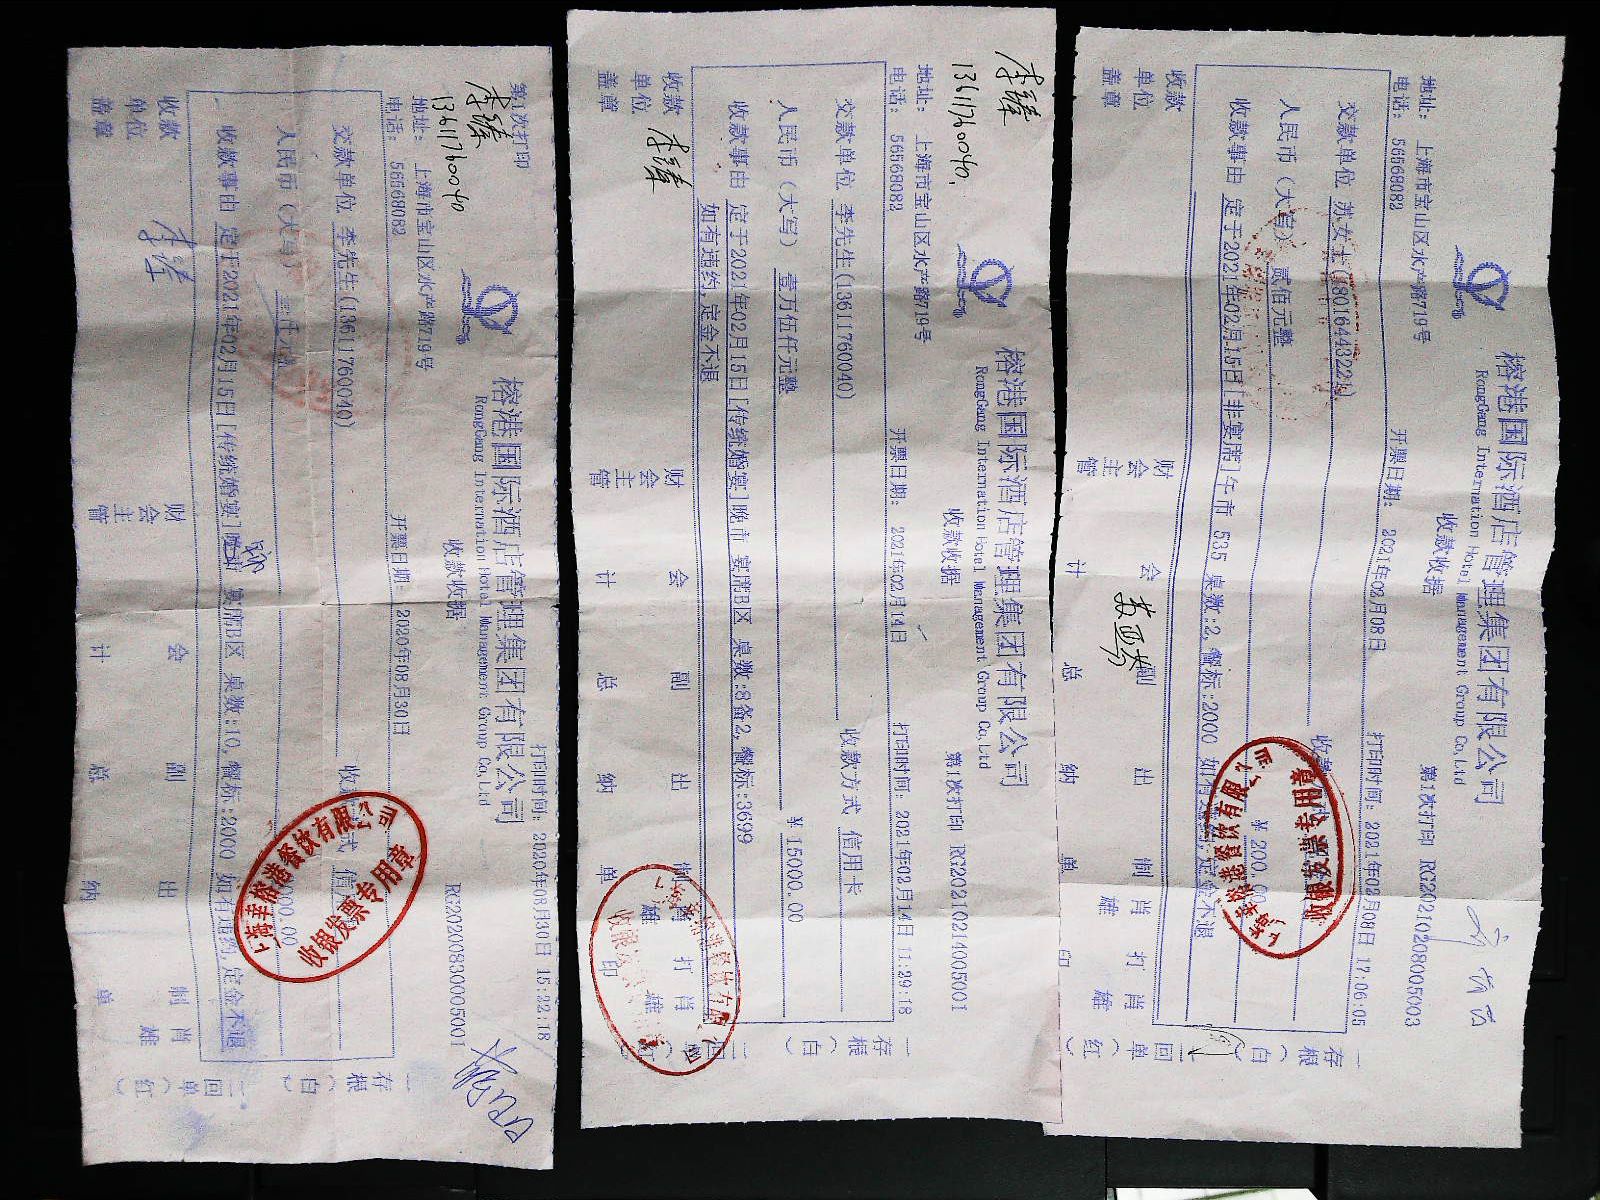 榕港国际酒店管理集团有限公司
RongGang International Hotel Management Group Co,Ltd
收款收据
第1次打印 RG20210208005003
地址: 上海市宝山区水产路719号
电话: 56568082
开票日期: 2021年02月08日
打印时间: 2021年02月08日 17:06:05
交款单位 苏女士(18016443224)
人民币(大写) 贰佰元整
¥ 200.00
收款事由 定于2021年02月15日[非宴席]午市 535 桌数:2,餐标:2000 如有违约,定金不退
收款单位盖章
财会主管
会计
副总
出纳
制单 肖雄
打印 肖雄
一存根(白)
二回单(红)
上海幸榕港餐饮有限公司
收银发票专用章
李臻
13611760040.
榕港国际酒店管理集团有限公司
RongGang International Hotel Management Group Co,Ltd
收款收据
第1次打印 RG20210214005001
地址: 上海市宝山区水产路719号
电话: 56568082
开票日期: 2021年02月14日
打印时间: 2021年02月14日 11:29:18
交款单位 李先生(13611760040)
收款方式 信用卡
人民币(大写) 壹万伍仟元整
¥ 15000.00
收款事由 定于2021年02月15日[传统婚宴]晚市 宴席B区 桌数:8备2,餐标:3699
如有违约,定金不退
收款单位盖章 李臻
财会主管
会计
副总
出纳
制单 肖雄
打印 肖雄
一存根(白)
二回单(红)
第1次打印
李臻
13611760040
榕港国际酒店管理集团有限公司
RongGang International Hotel Management Group Co,Ltd
收款收据
RG20200830005001
地址: 上海市宝山区水产路719号
电话: 56568082
开票日期: 2020年08月30日
打印时间: 2020年08月30日 15:22:18
交款单位 李先生(13611760040)
人民币(大写)
收款事由 定于2021年02月15日[传统婚宴]晚市 宴席B区 桌数:10,餐标:2000 如有违约,定金不退
收款单位盖章 李臻
财会主管
会计
副总
出纳
制单 肖雄
一存根(白)
二回单(红)
上海幸榕港餐饮有限公司
收银发票专用章